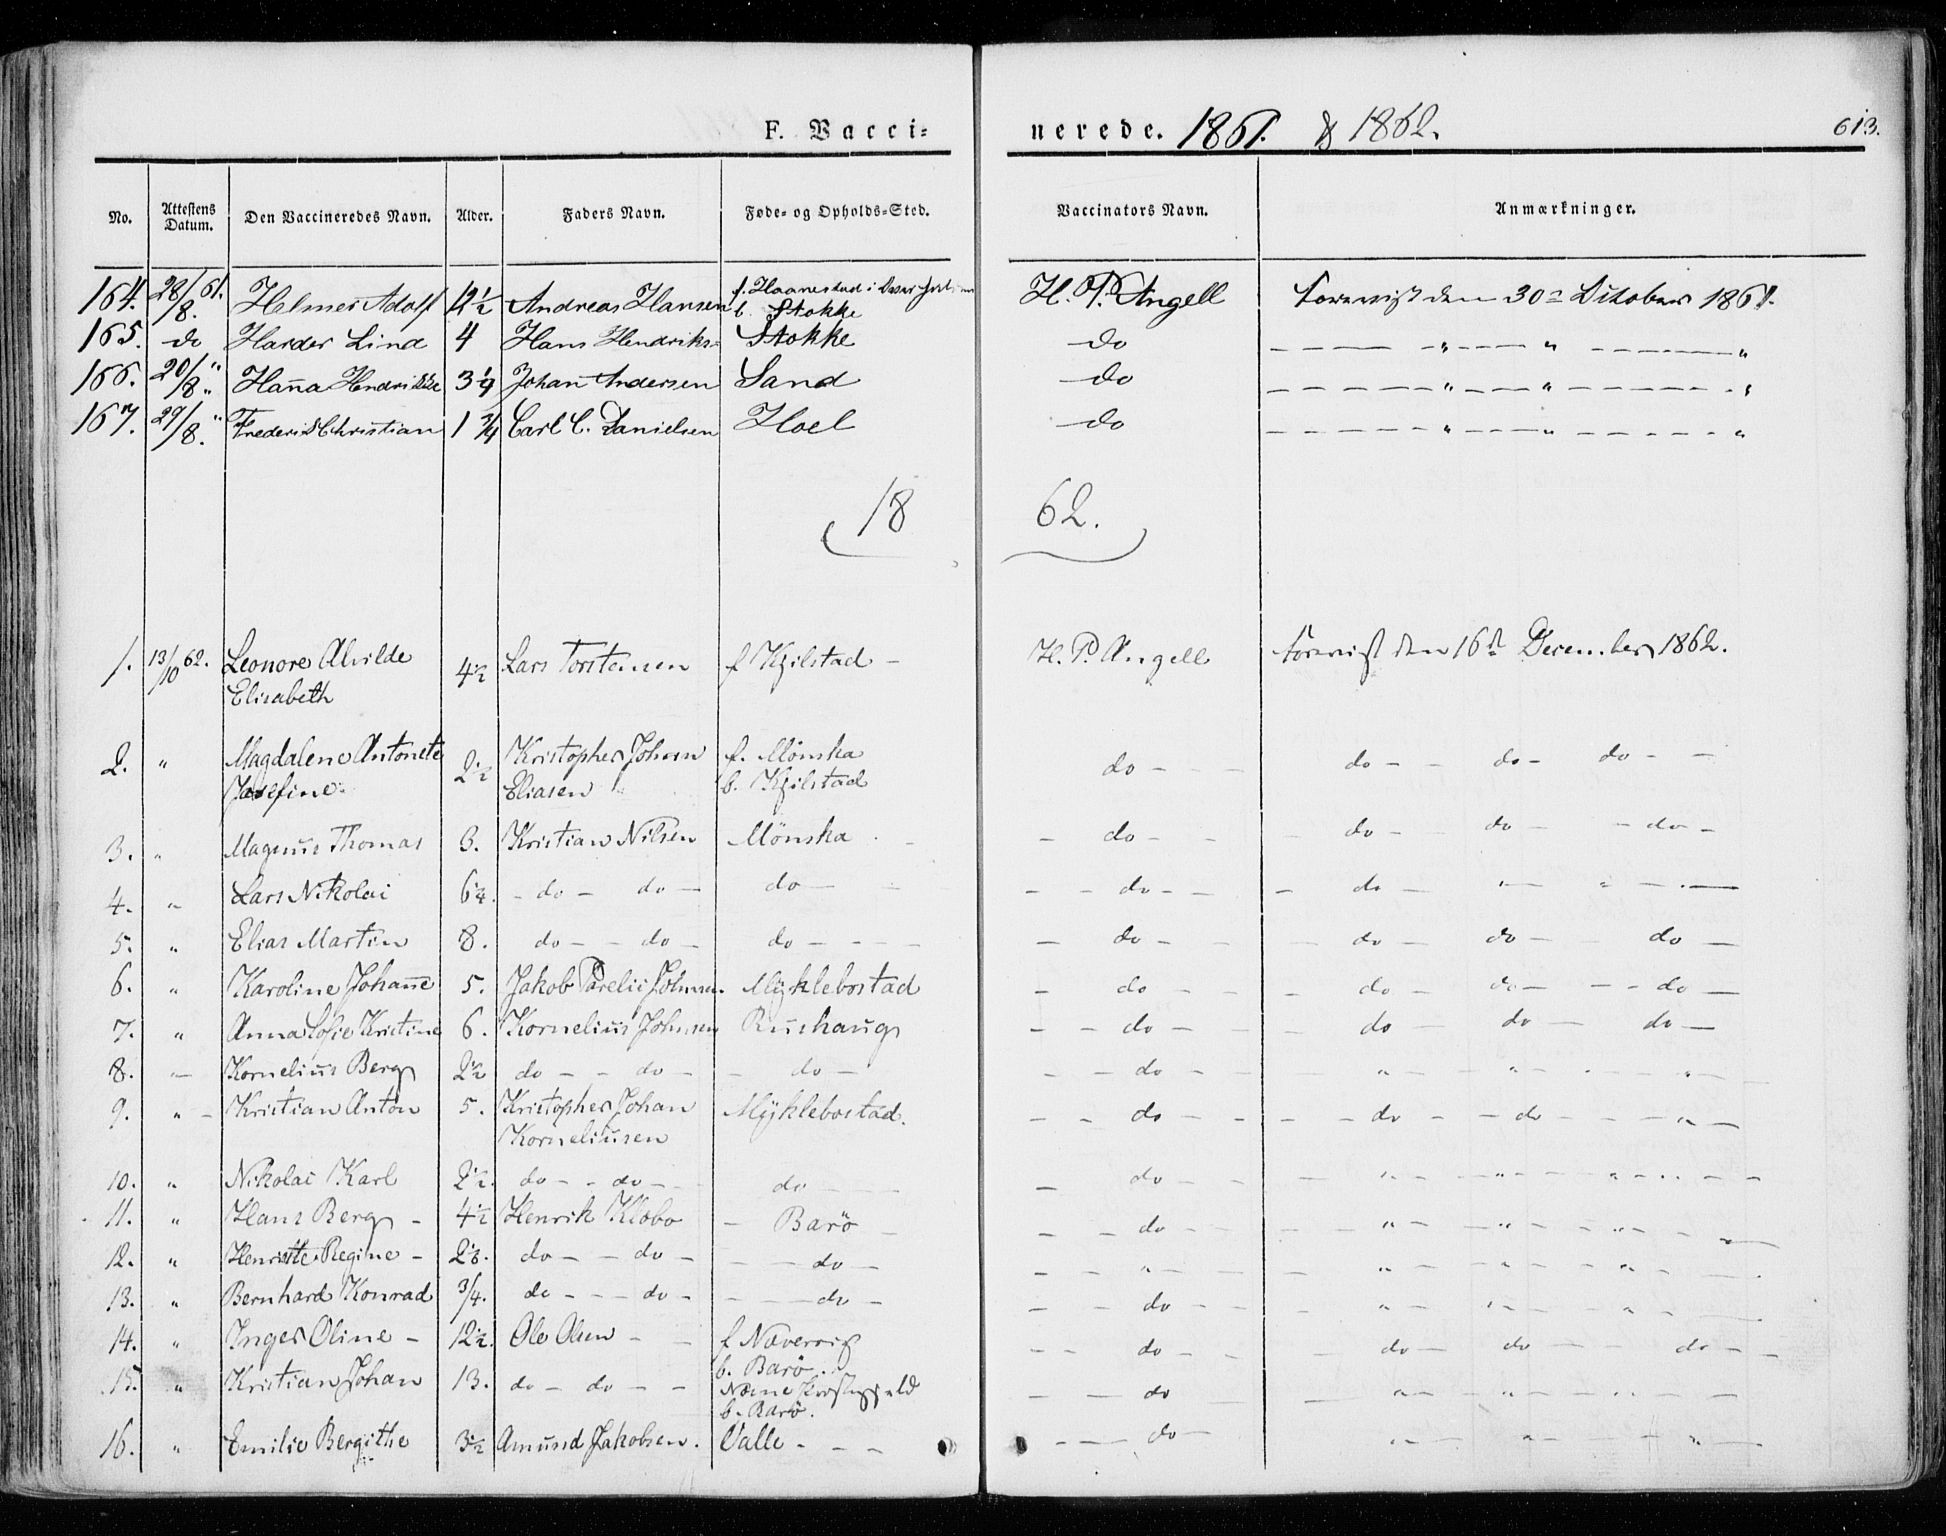 F. Vacci= nerede. 1861. & 1862. 613.
No. Attestens Datum. Den Vaccineredes Navn. Alder. Faders Navn. Føde- og Opholds-Sted. Vaccinators Navn. Anmærkninger.
164. 28/8. 61. Helmer Adolf 12½ Andreas Hansen f. Haanestad i b. Stokke H. P. Angell Forevist den 30 October 1861.
165. do Harder Lind 4 Hans Hendriks= Stokke do — " — " — "
166. 20/8. " Hanna 3¼ Johan Andersen Sand do — " — " — "
167. 29/8. " Frederik Christian 1¾ Carl C. Danielsen Hoel do — " — " — "
1862.
1. 13/10 62. Leonore Alvilde Elisabeth 4½ Lars Torstensen f Kjilstad – H. P. Angell Forevist den 16 December 1862.
2. " Magdalene Antonete Josefine 2½ Kristopher Johan Eliasen f. Mönska b. Kjilstad do – do – do – do –
3. " Magnus Thomas 3. Kristian Nilsen Mönska – do – do – do – do –
4. " Lars Nikolai 6¼. – do – do – do – – do – – do – " – " –
5. " Elias Martin 8. do – – do – do – – do – – do – do – do –
6. " Karoline Johanne 5. Jakob Johnsen Myklebostad – do – – do – do – do –
7. " Anna Sofie Kristine 6. Kornelius Johnsen Rushaug – do – do – do – do –
8. – Kornelius Berg 2½ do – – do – – do – – do – " – " – "
9. " Kristian Anton 5. Kristopher Johan Korneliusen Myklebostad. – do – – do – – do – "
10. " Nikolai Karl 2½. do – – do – do – do – " – " – "
11. " Hans Berg – 4½ Henrik Klæbo – Barö – do – " – " – "
12. " Henriette Regine – do – – do – – do – – " – " – " – "
13. " Bernhard Konrad 3/4. do – – do – – do – – do – " – " – "
14. " Inger Oline – 12½. Ole Olsen – f b. Barö. – do – – do – do – do –
15. " Kristian Johan 13. do – do – – b. Barö. – do " – " – "
16. " Emilie Bergithe 3½ Amund Jakobsen. Valle – – – – do – " – " – "